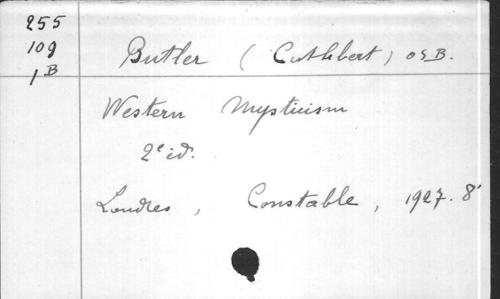 255
109
1B
Butler (Cuthbert) OSB.
Western Mysticism
2e éd.
Londres, Constable, 1927. 8°